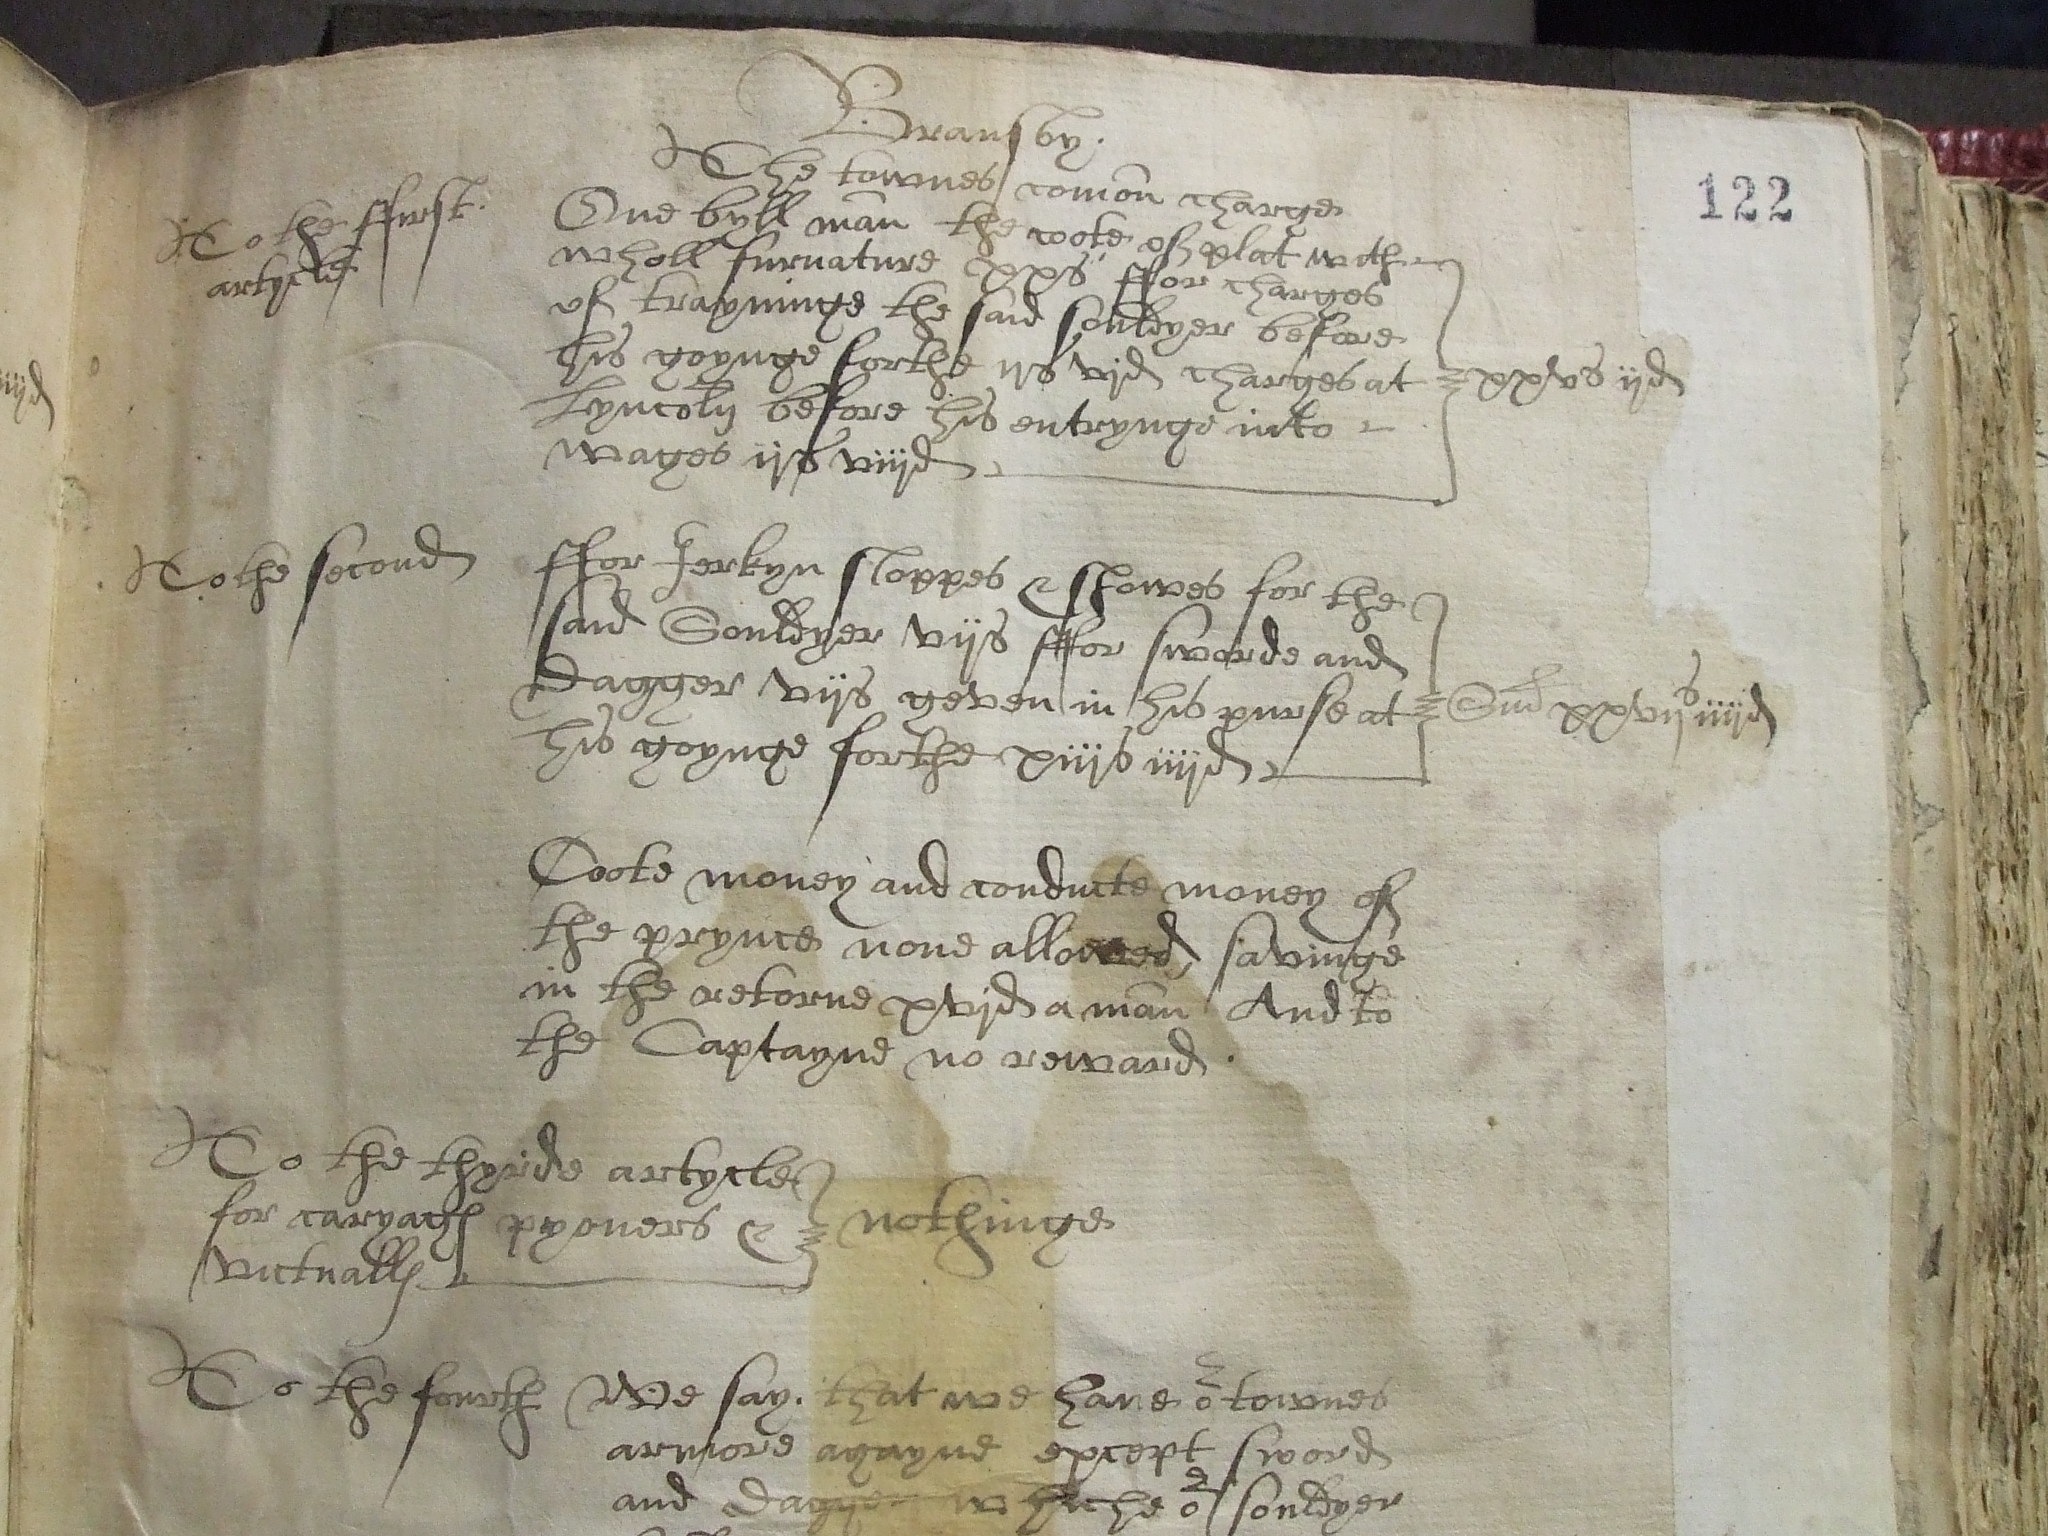 Bransby.
122
The townes comon charge
To the ffyrst
artycle
One byll man the coote of plat with
wholl furnature xxs ffor charges
of trayninge the said souldyer before
his goynge forthe ijs vjd charges at
xxvs ijd
Lyncoln before his entrynge into
wages ijs viijd
To the second
ffor Jerkyn sloppes & showes for the
said Souldyer vijs ffor sworde and
dagger vijs geven in his purse at
Sm xxvijs iiijd
his goynge forthe xiijs iiijd
Coote money and conducte money of
the prynce none allowed, savinge
in the retorne xvjd a man And to
the Captayne no reward.
To the thyrde artycle
for caryage pyoners &
nothinge
victualls
To the fourth We say that we have or townes
armore agayne except sword
and dagger whiche or souldyer